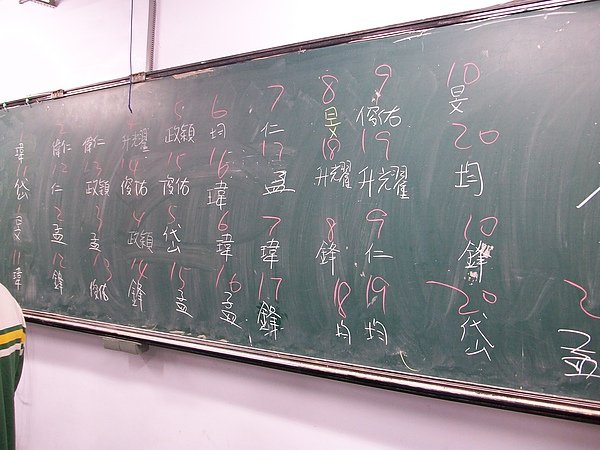 2 5 6 7 8 9 10
瑋 偉仁 偉仁 升耀 政穎 均 仁 旻 俊佑 旻
11 12 13 14 15 16 17 18 19 20
岱 仁 政穎 俊佑 俊佑 瑋 孟 升耀 升耀 均
1 2 3 4 5 6 7 8 9 10
旻 孟 孟 政穎 岱 瑋 瑋 鋒 仁 鋒
11 12 13 14 15 16 17 18 19 20 2
瑋 鋒 俊佑 鋒 孟 孟 鋒 均 均 岱 孟